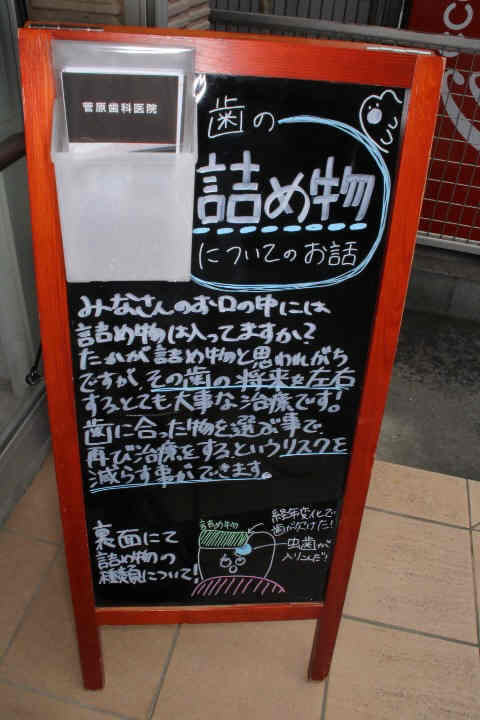 菅原歯科医院
歯の
詰め物
についてのお話
みなさんのお口の中には
詰め物は入ってますか?
たかが詰め物と思われがち
ですが、その歯の将来を左右
するとても大事な治療です!
歯に合った物を選ぶ事で
再び治療をするというリスクを
減らす事ができます。
裏面にて
詰め物の
種類について!
詰め物
経年変化で
歯が欠けた!
虫歯が
入りこんだ!